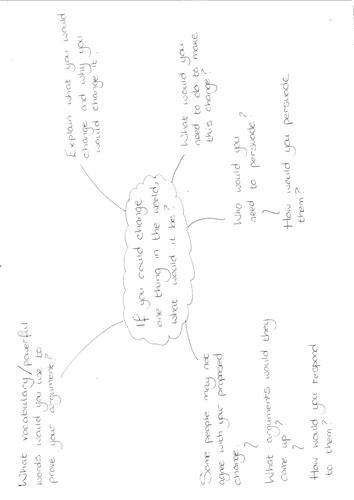 What vocabulary/powerful
words would you use to
prove your argument?
Explain what you would
change and why you
would change it.
If you could change
one thing in the world,
what would it be?
What would you
need to do to make
this change?
Some people may not
agree with your proposed
change.
?
What arguments would they
come up?
?
How would you respond
to them?
Who would you
need to persuade?
?
How would you persuade
them?